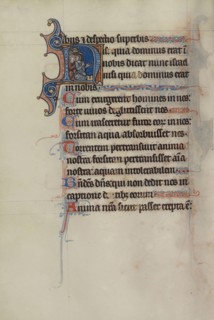 dibus ⁊ despectio superbis
Nisi quia dominus erat i
nobis dicat nunc israel
nisi quia dominus erat
in nobis
Cum exurgerent homines in nos
forte vivos deglutissent nos
Cum irasceretur furor eor in nos
forsitan aqua absorbuisset nos
Torrentem pertransivit anima
nostra forsitan pertransisset aia
nostra aquam intolerabilem
Bnds dns qui non dedit nos in
captione dentibz eorum
Anima nra sicut passer erepta e